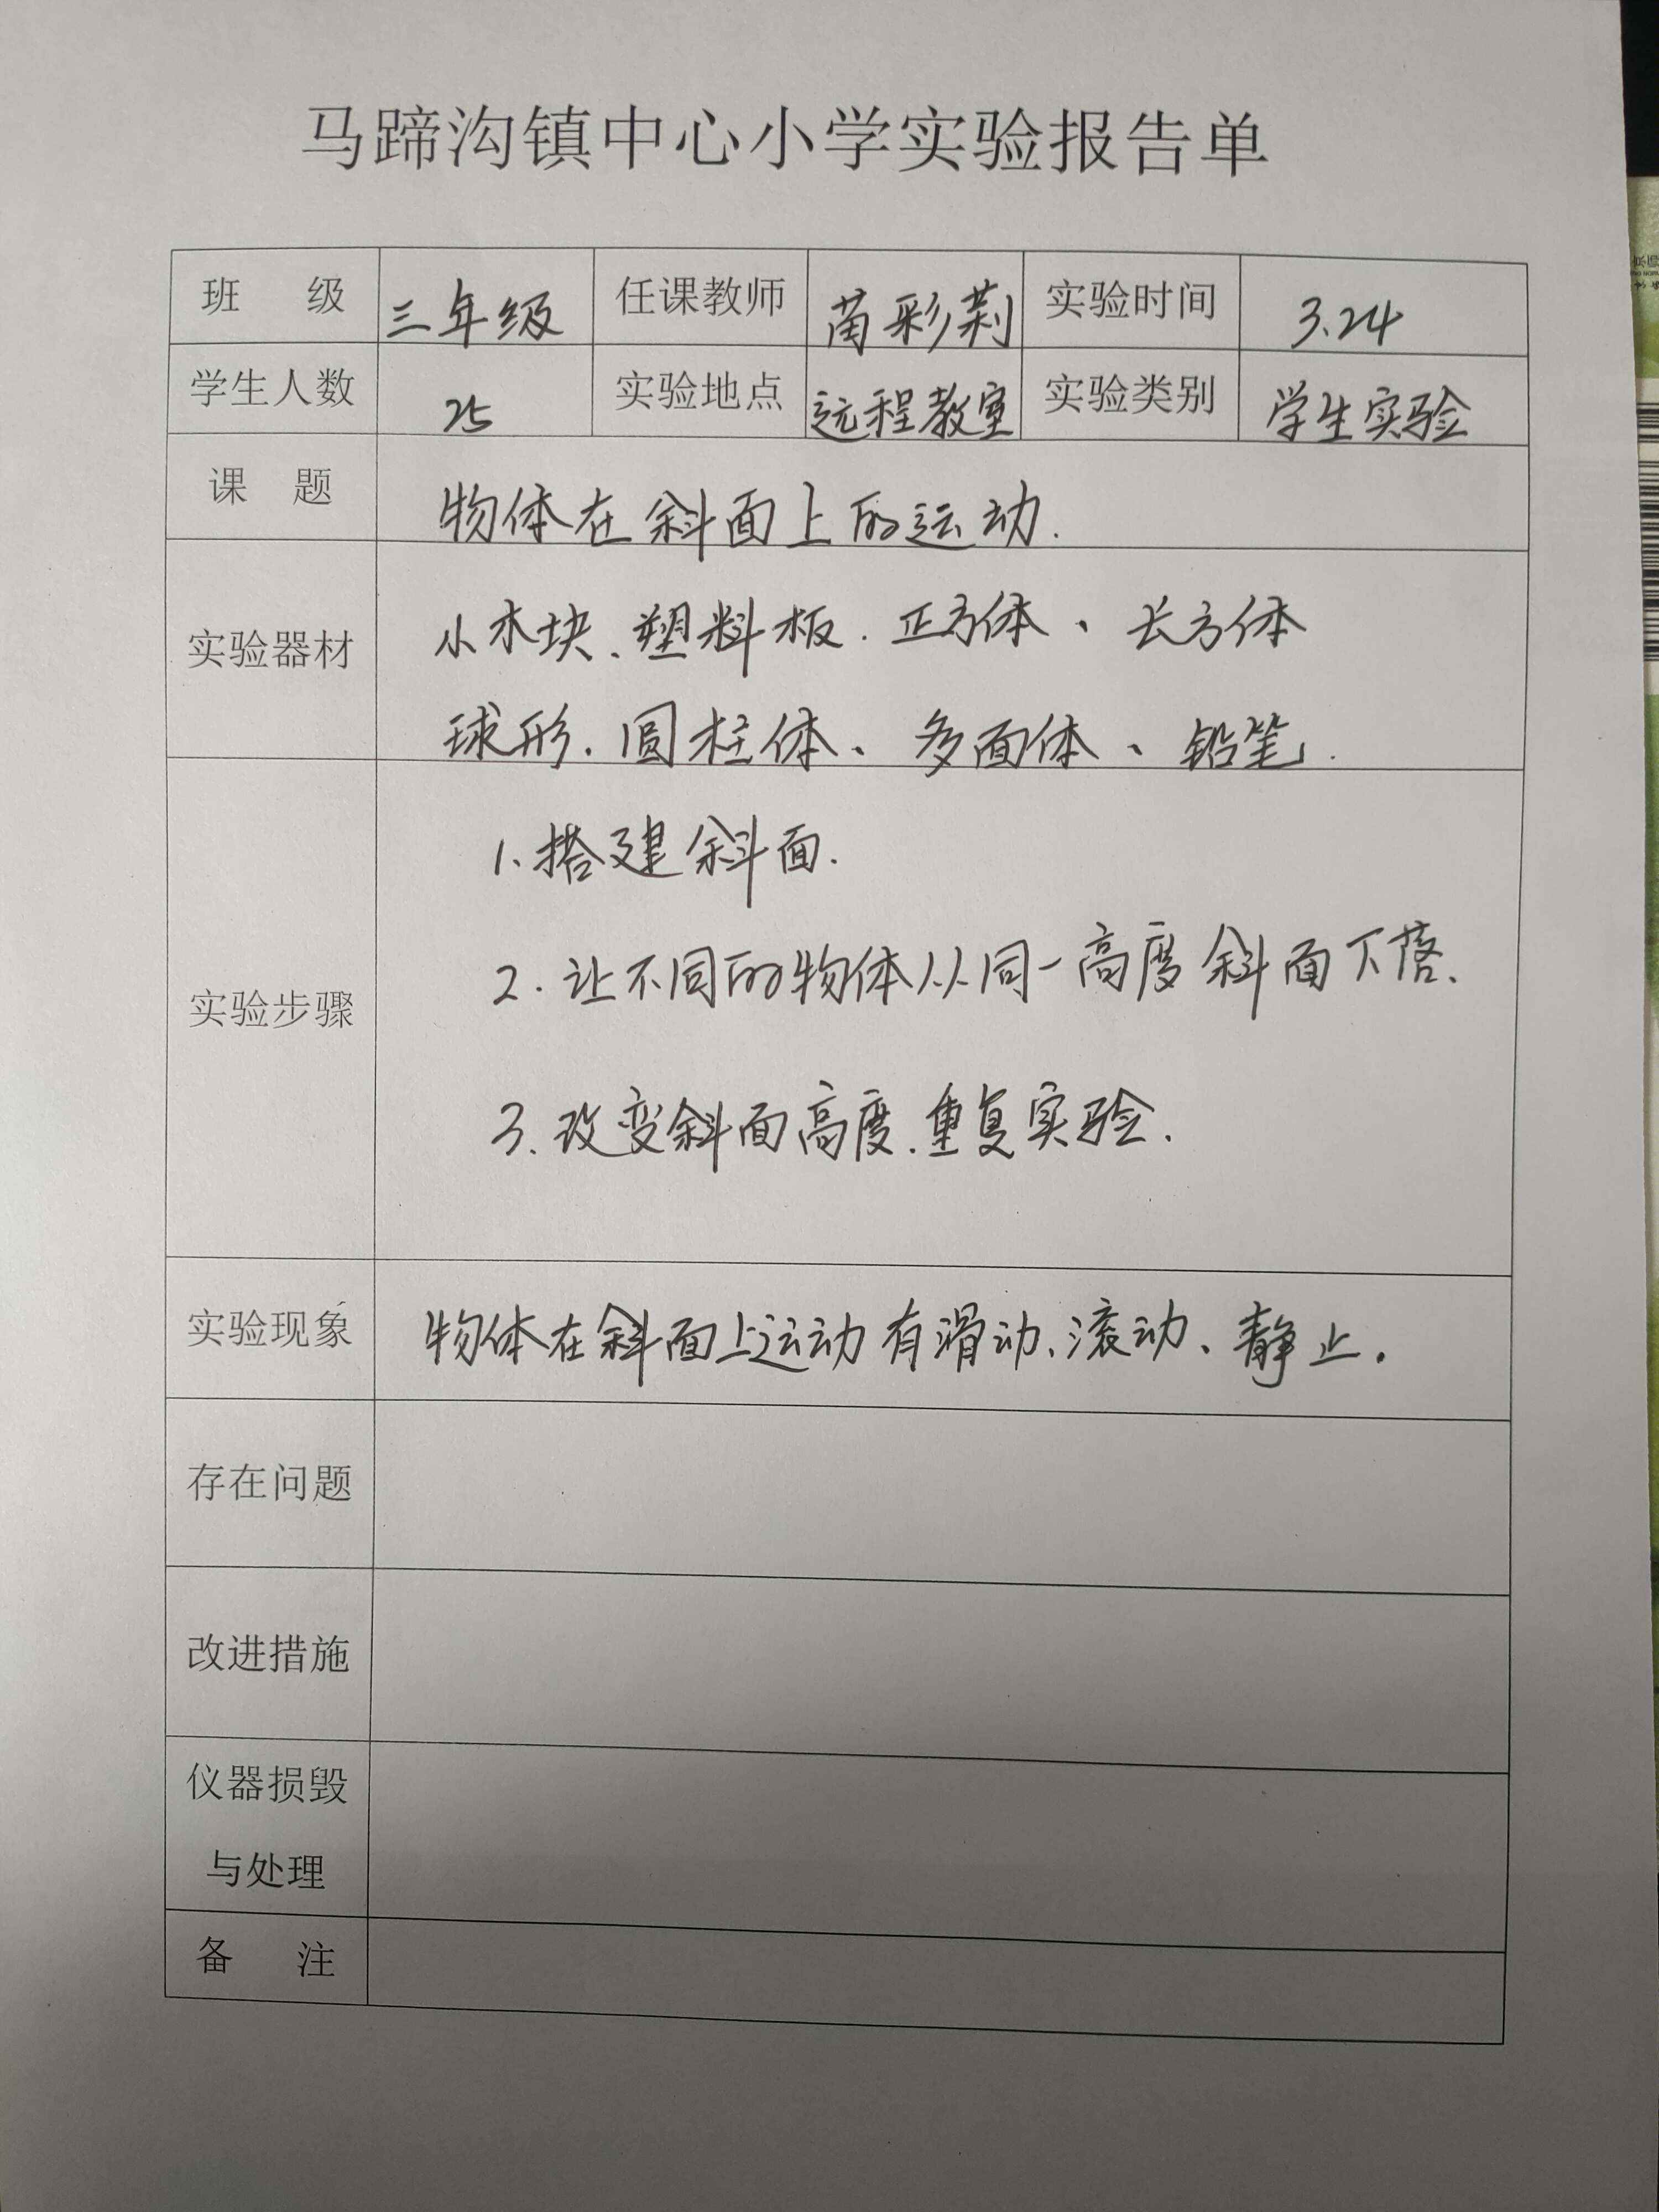 马蹄沟镇中心小学实验报告单
班 级 三年级 任课教师 苗彩莉 实验时间 3.24
学生人数 25 实验地点 远程教室 实验类别 学生实验
课 题 物体在斜面上的运动.
实验器材
小木块、塑料板.正方体、长方体
球形.圆柱体、多面体、铅笔.
实验步骤
1、搭建斜面.
2.让不同的物体从同一高度斜面下落、
3、改变斜面高度.重复实验.
实验现象 物体在斜面上运动有滑动、滚动、静止.
存在问题
改进措施
仪器损毁
与处理
备 注